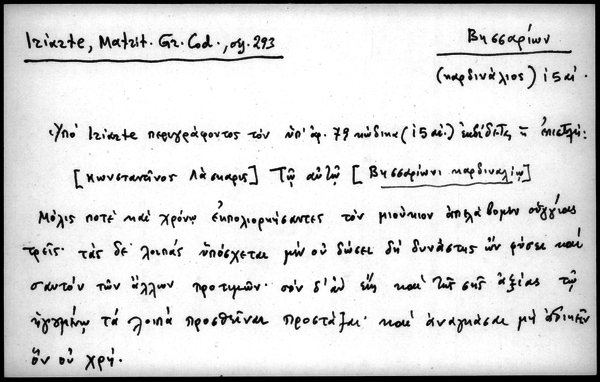 Iriarte, Matrit. Gr. Cod., σης. 293
Βησσαρίων
(καρδινάλιος) 15 αἰ.
Ὑπὸ Iriarte περιγράφοντος τὸν ὑπ' ἀρ. 79 κώδικα (15 αἰ.) ἐκδίδεται ἡ ἐπιστολή:
[Κωνσταντῖνος Λάσκαρις] Τῷ αὐτῷ [Βησσαρίωνι καρδιναλίῳ]
Μόλις ποτὲ καὶ χρόνῳ ἐκπολιορκήσαντες τὸν μιούκιον ἀπελάβομεν οὐγγίας
τρεῖς· τὰς δὲ λοιπάς ὑπόσχεται μὲν οὐ δώσει δὴ δυνάστης ὢν φύσει καὶ
σαυτόν τῶν ἄλλων προτιμῶν· σὸν δ' ἂν εἴη καὶ τῆς σῆς ἀξίας τῷ
ἡγουμένῳ τά λοιπά προσθεῖναι προστάξαι· καὶ ἀναγκάσαι μὴ ἀδικεῖν
ὃν οὐ χρή.